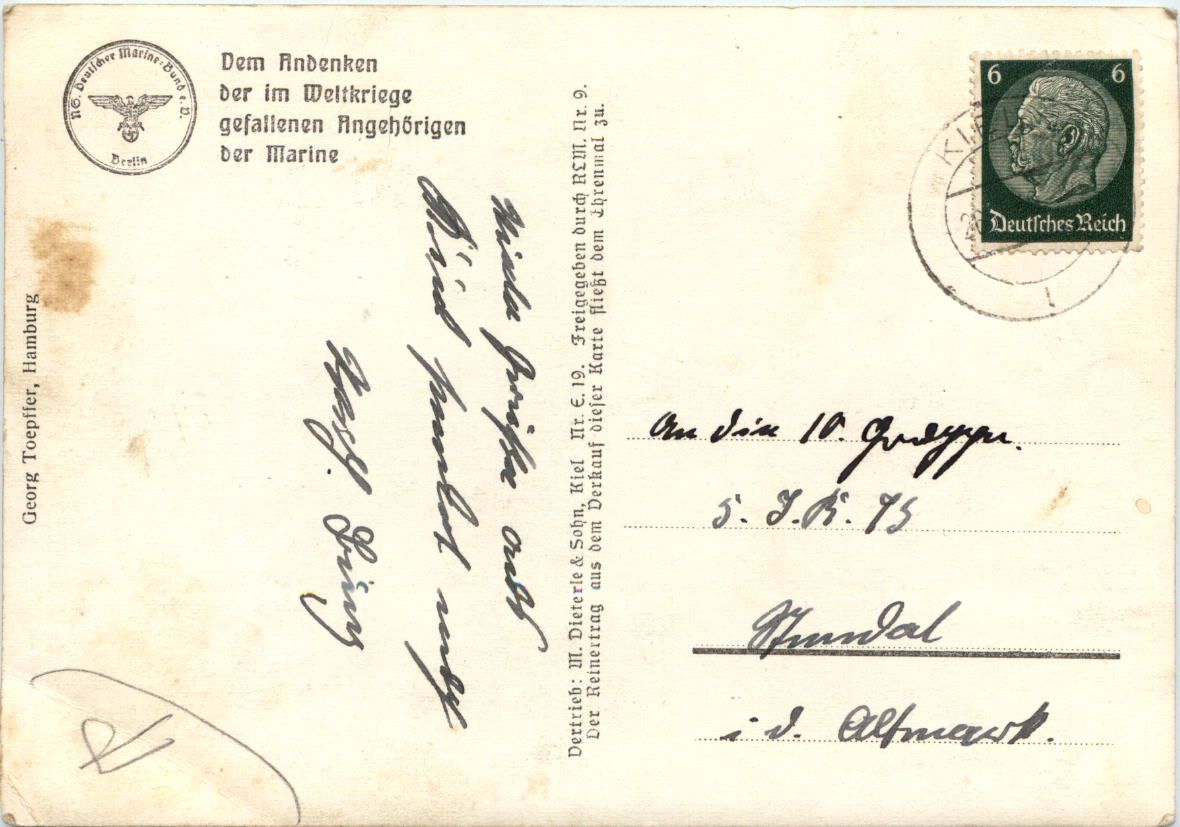 NS. Deutscher Marine-Bund e.V.
Berlin
Dem Andenken
der im Weltkriege
gefallenen Angehörigen
der Marine
Georg Toepffer, Hamburg
Viele Grüße aus
Kiel sendet
Vertrieb: M. Dieterle & Sohn, Kiel Nr. E. 19. Freigegeben durch RLM. Nr. 9.
Der Reinertrag aus dem Verkauf dieser Karte fließt dem Ehrenmal zu.
6 6
Deutsches Reich
An die 10. Gruppe.
5. I.R. 93
Stendal
i. d. Altmark.